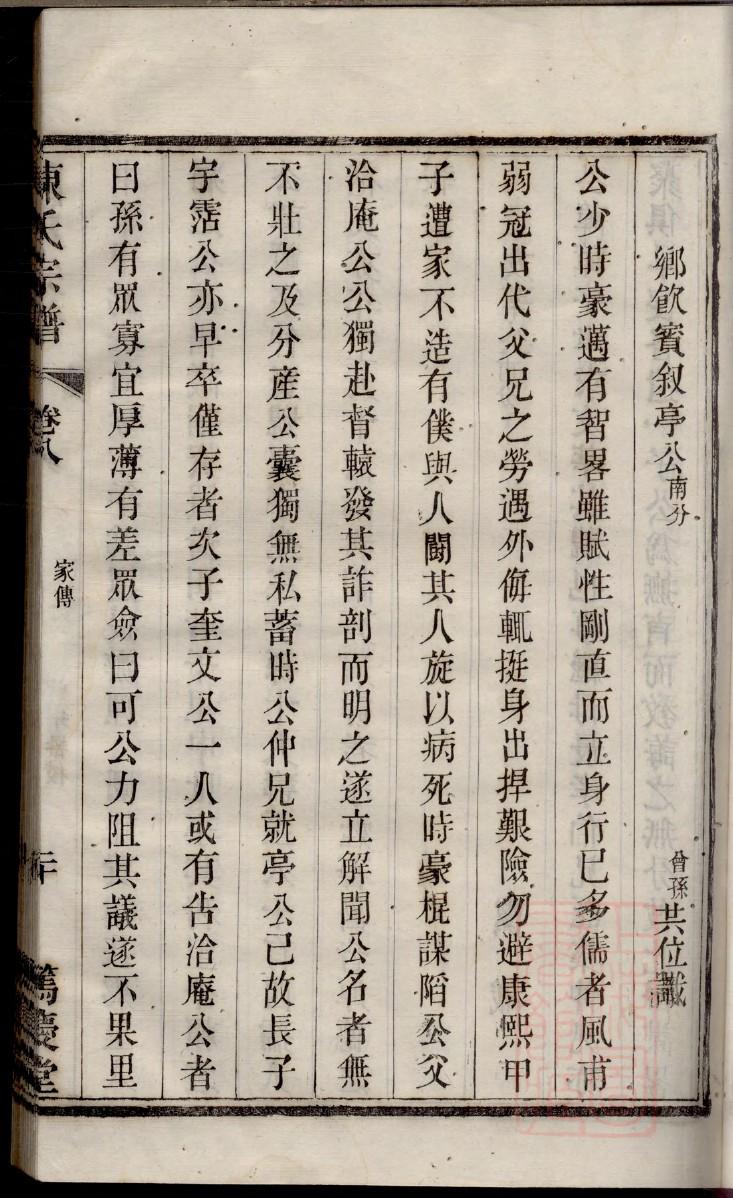 鄉飲賓叙亭公南分 曾孫共位識
公少時豪邁有智畧雖賦性剛直而立身行已多儒者風甫
弱冠出代父兄之勞遇外侮輒挺身出捍艱險勿避康熙甲
子遭家不造有僕與人鬪其人旋以病死時豪棍謀陷公父
洽庵公公獨赴督轅發其詐剖而明之遂立解聞公名者無
不壯之及分產公囊獨無私蓄時公仲兄就亭公己故長子
宇霑公亦早卒僅存者次子奎文公一人或有告洽庵公者
曰孫有眾寡宜厚薄有差眾僉曰可公力阻其議遂不果里
陳氏宗譜 卷八 家傳 二十 篤慶堂